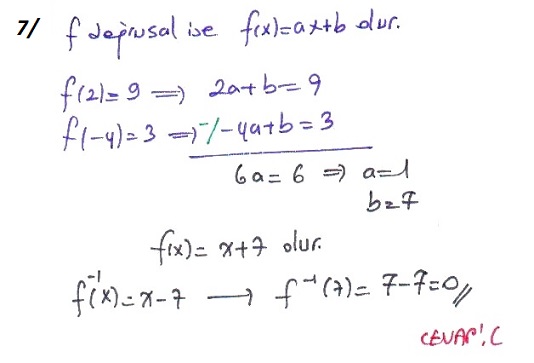 7/ f doğrusal ise f(x)=ax+b olur.
f(2)=9 ⟹ 2a+b=9
f(-4)=3 ⟹ -/-4a+b=3
6a=6 ⟹ a=1
b=7
f(x)= x+7 olur.
f⁻¹(x)=x-7 ⟶ f⁻¹(7)= 7-7=0//
CEVAP: C